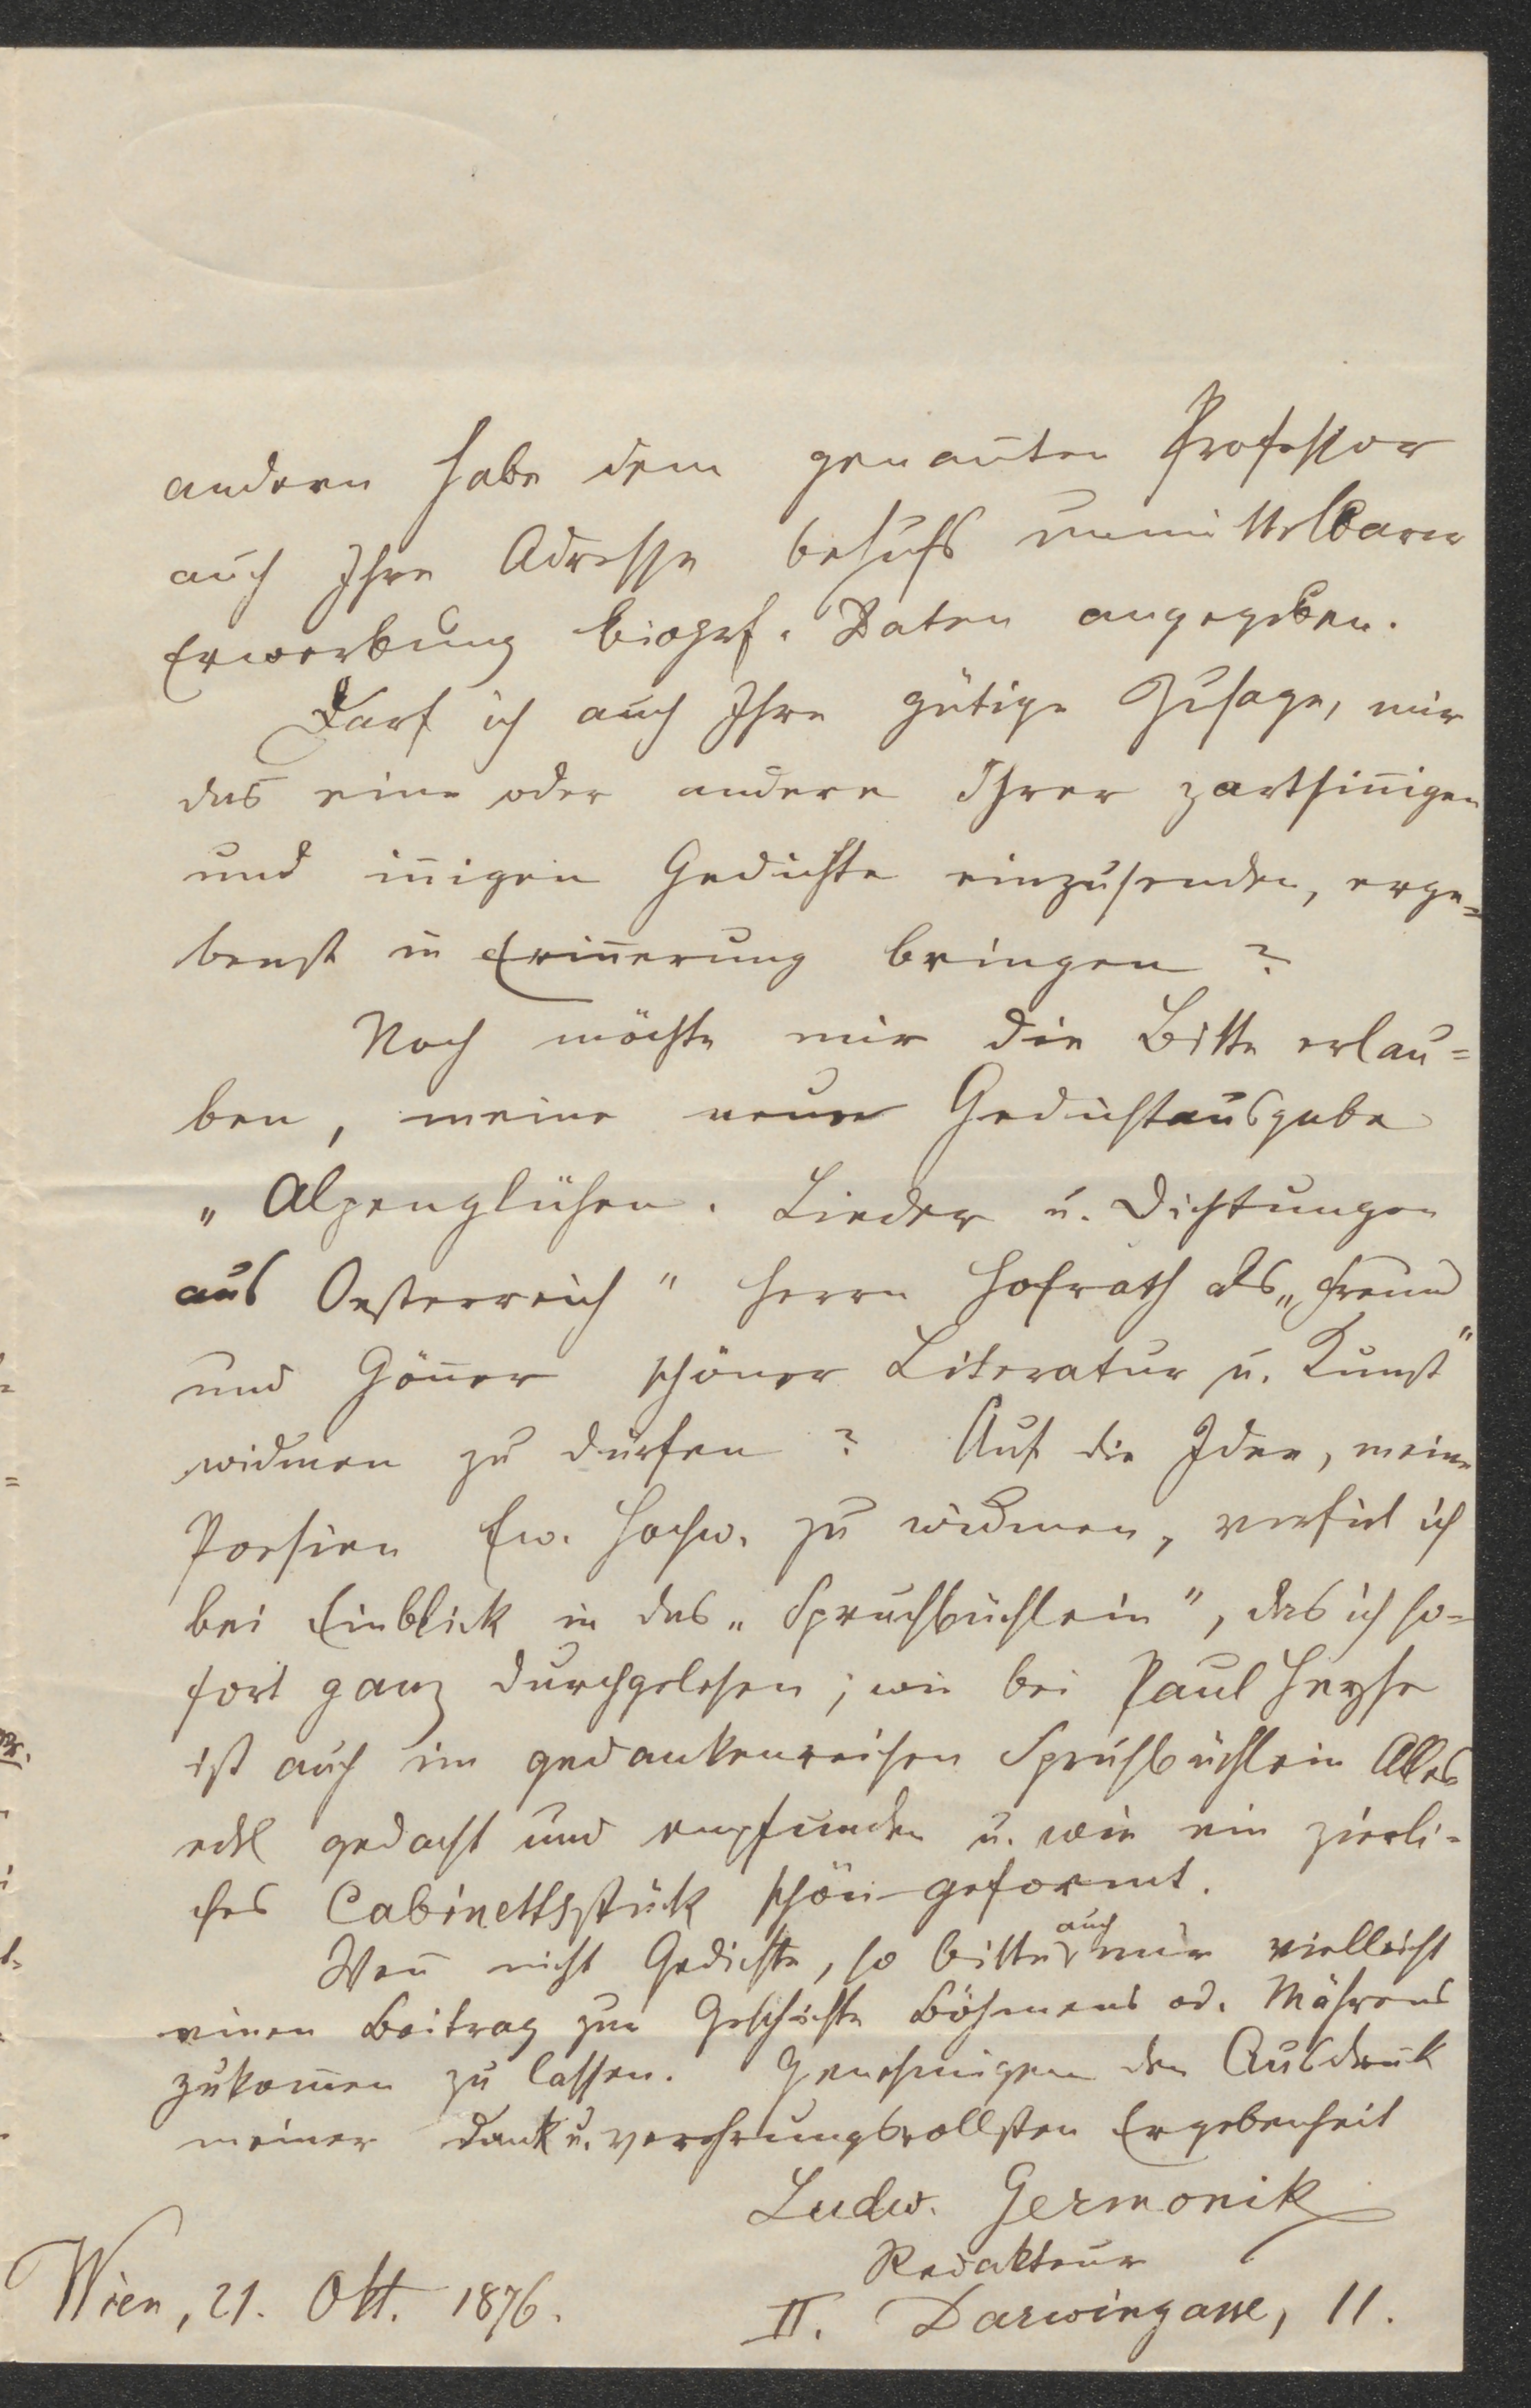 andern habe dem genan̄ten Professor
auch Ihre Adresse behufs unmittelbarer
Erwerbung biogrf. Daten angegeben.
Darf ich auch Ihre gütige Zusage, mir
das eine oder andere Ihrer zartsin̄igen
und in̄igen Gedichte einzusenden, erge=
benst in Erin̄erung bringen?
Noch möchte mir die Bitte erlau=
ben, meine neue Gedichtausgabe
„Alpenglühen. Lieder u. Dichtungen
aus Oesterreich" Herrn Hofrath als „Freund
und Gön̄er schöner Literatur u. Kunst"
widmen zu dürfen? Auf die Idee, meine
Poesien Ew. Hochw. zu widmen, verfiel ich
bei Einblick in das „Spruchbüchlein", das ich so=
fort ganz durchgelesen; wie bei Paul Heyse
ist auch im gedankenreichen Spruchbüchlein Alles
edel gedacht und empfunden u. wie ein zierli=
ches Cabinettsstück schön geformt.
Wen̄ nicht Gedichte, so bitte auch mir vielleicht
einen Beitrag zur Geschichte Böhmens od. Mährens
zukom̄en zu lassen. Genehmigen den Ausdruk
meiner dank u. verehrungsvollsten Ergebenheit
Ludw. Germonik
Redakteur
Wien, 21. Okt. 1876.
II. Darwingasse, 11.